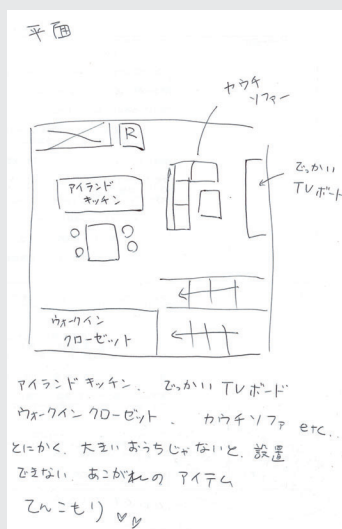 平面
カウチ
ソファー
R
アイランド
キッチン
でっかい
TVボード
ウォークイン
クローゼット
アイランドキッチン、でっかいTVボード
ウォークインクローゼット、カウチソファ etc...
とにかく、大きいおうちじゃないと、設置
できない、あこがれの アイテム
てんこもり♡♡